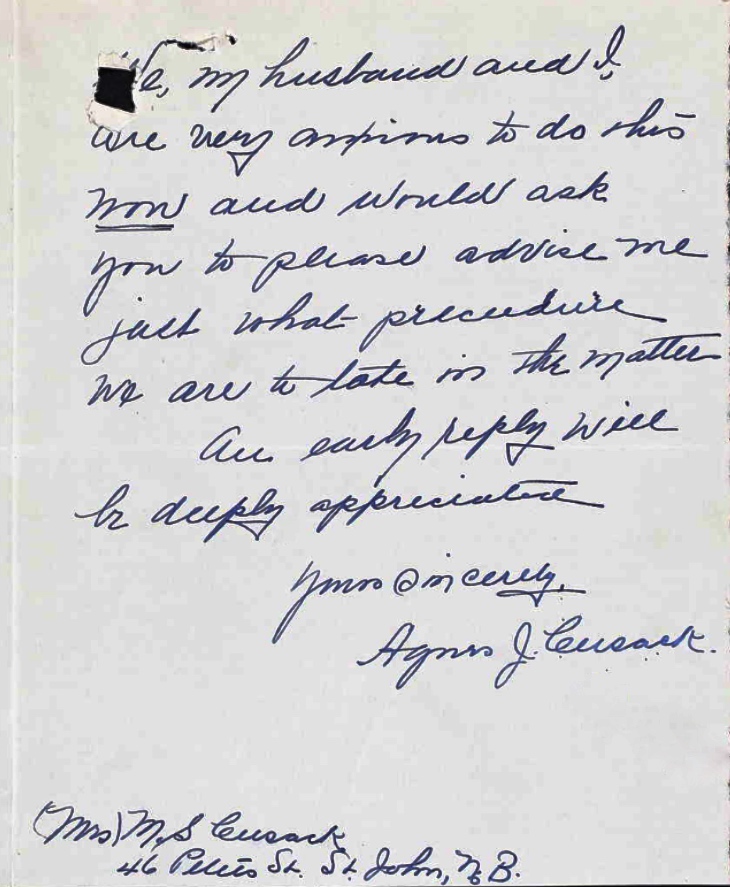 We, my husband and I,
are very anxious to do this
now and would ask
you to please advise me
just what precedure
we are to take in the matter
An early reply will
be deeply appreciated
Yours Sincerely,
Agnes J. Cusack.
(Mrs) M. S Cusack
46 Peters St. St. John, N. B.